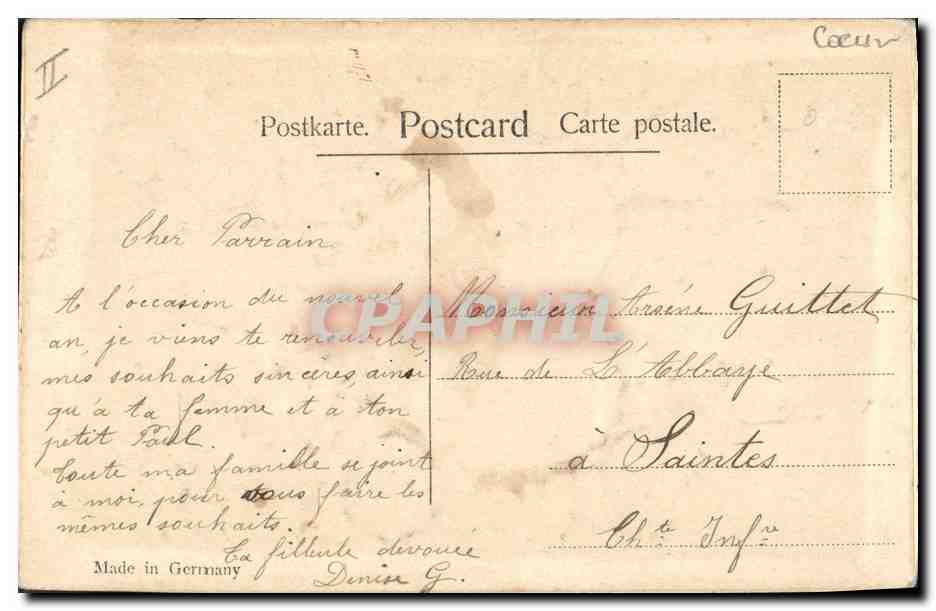 II
Coeur
Postkarte. Postcard Carte postale.
Cher Parrain
A l'occasion du nouvel
an, je viens te renouveler,
mes souhaits sincères, ainsi
qu'à ta femme et à ton
petit Paul.
Toute ma famille se joint
à moi, pour vous faire les
mêmes souhaits.
Ta filleule dévouée
Denise G.
Made in Germany
Monsieur Arsène Guittet
Rue de L'Abbaye
à Saintes
Chte Infre
CPAPHIL